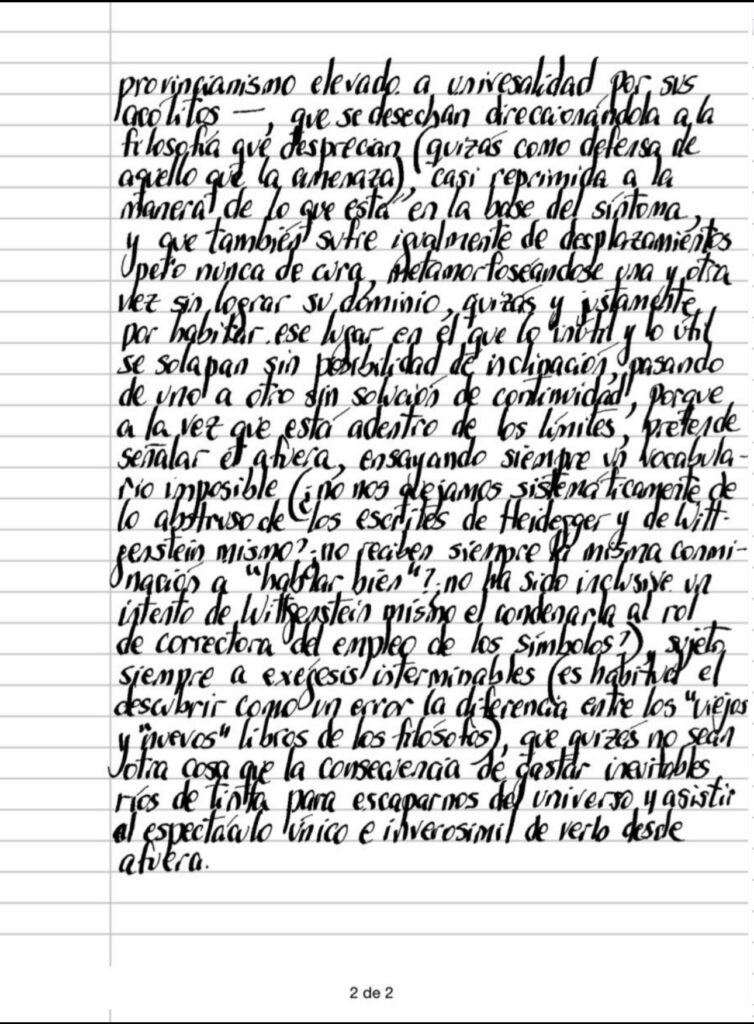 provincianismo elevado a univesalidad por sus
acólitos —, que se desechan direccionándola a la
filosofía que desprecian (quizás como defensa de
aquello que la amenaza), casi reprimida a la
manera de lo que está en la base del síntoma,
y que también sufre igualmente de desplazamientos
pero nunca de cura, metamorfoseándose una y otra
vez sin lograr su dominio, quizás y justamente
por habitar ese lugar en el que lo inútil y lo útil
se solapan sin posibilidad de inclinación, pasando
de uno a otro sin solución de continuidad, porque
a la vez que está adentro de los límites, pretende
señalar el afuera, ensayando siempre un vocabula-
rio imposible (¿no nos quejamos sistemáticamente de
lo abstruso de los escritos de Heidegger y de Witt-
genstein mismo? ¿no reciben siempre la misma conmi-
nación a "hablar bien"? ¿no ha sido inclusive un
intento de Wittgenstein mismo el condenarla al rol
de correctora del empleo de los símbolos?), sujeto
siempre a exégesis interminables (es habitual el
descubrir como un error la diferencia entre los "viejos"
y "nuevos" libros de los filósofos), que quizás no sean
otra cosa que la consecuencia de gastar inevitables
ríos de tinta para escaparnos del universo y asistir
al espectáculo único e inverosímil de verlo desde
afuera.
2 de 2